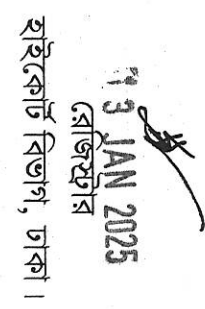 13 JAN 2025
রেজিস্ট্রার
হাইকোর্ট বিভাগ, ঢাকা।